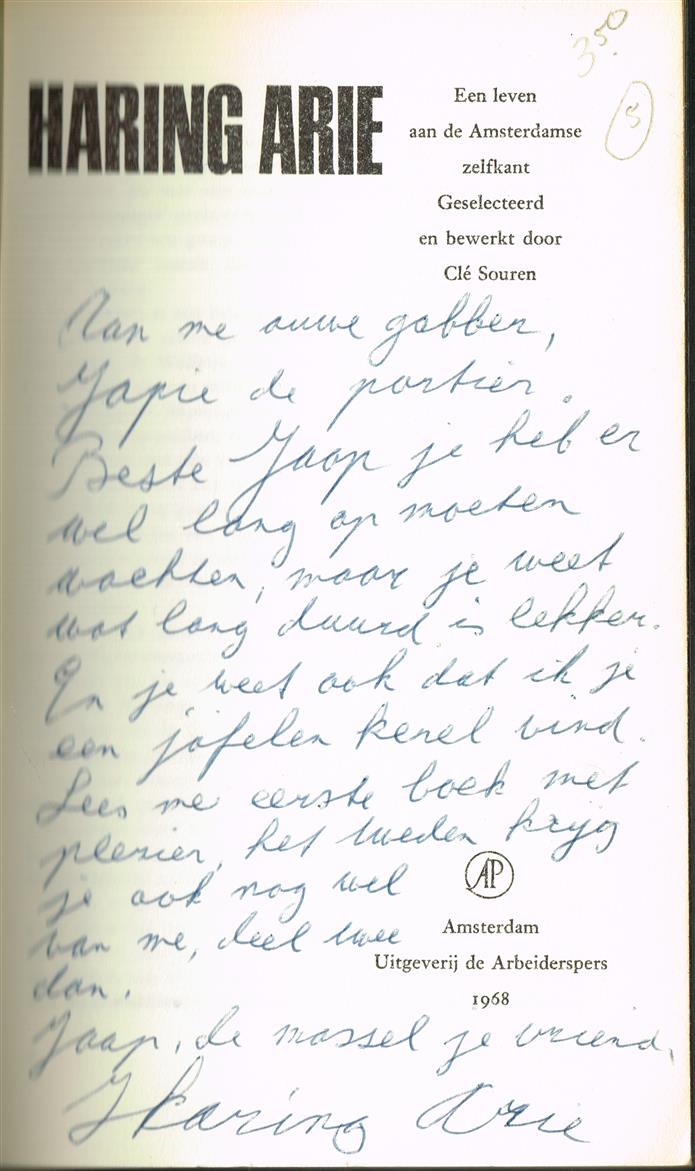 3.50
HARING ARIE
Een leven
aan de Amsterdamse
zelfkant
Geselecteerd
en bewerkt door
Clé Souren
Aan me ouwe gabber,
Japie de portier.
Beste Jaap je heb er
wel lang op moeten
wachten, maar je weet
wat lang duurd is lekker.
En je weet ook dat ik je
een jofelen kerel vind.
Lees me eerste boek met
plezier, het tweden krijg
je ook nog wel
van me, deel twee
dan.
AP
Amsterdam
Uitgeverij de Arbeiderspers
1968
Jaap, de massel je vriend,
Haring Arie